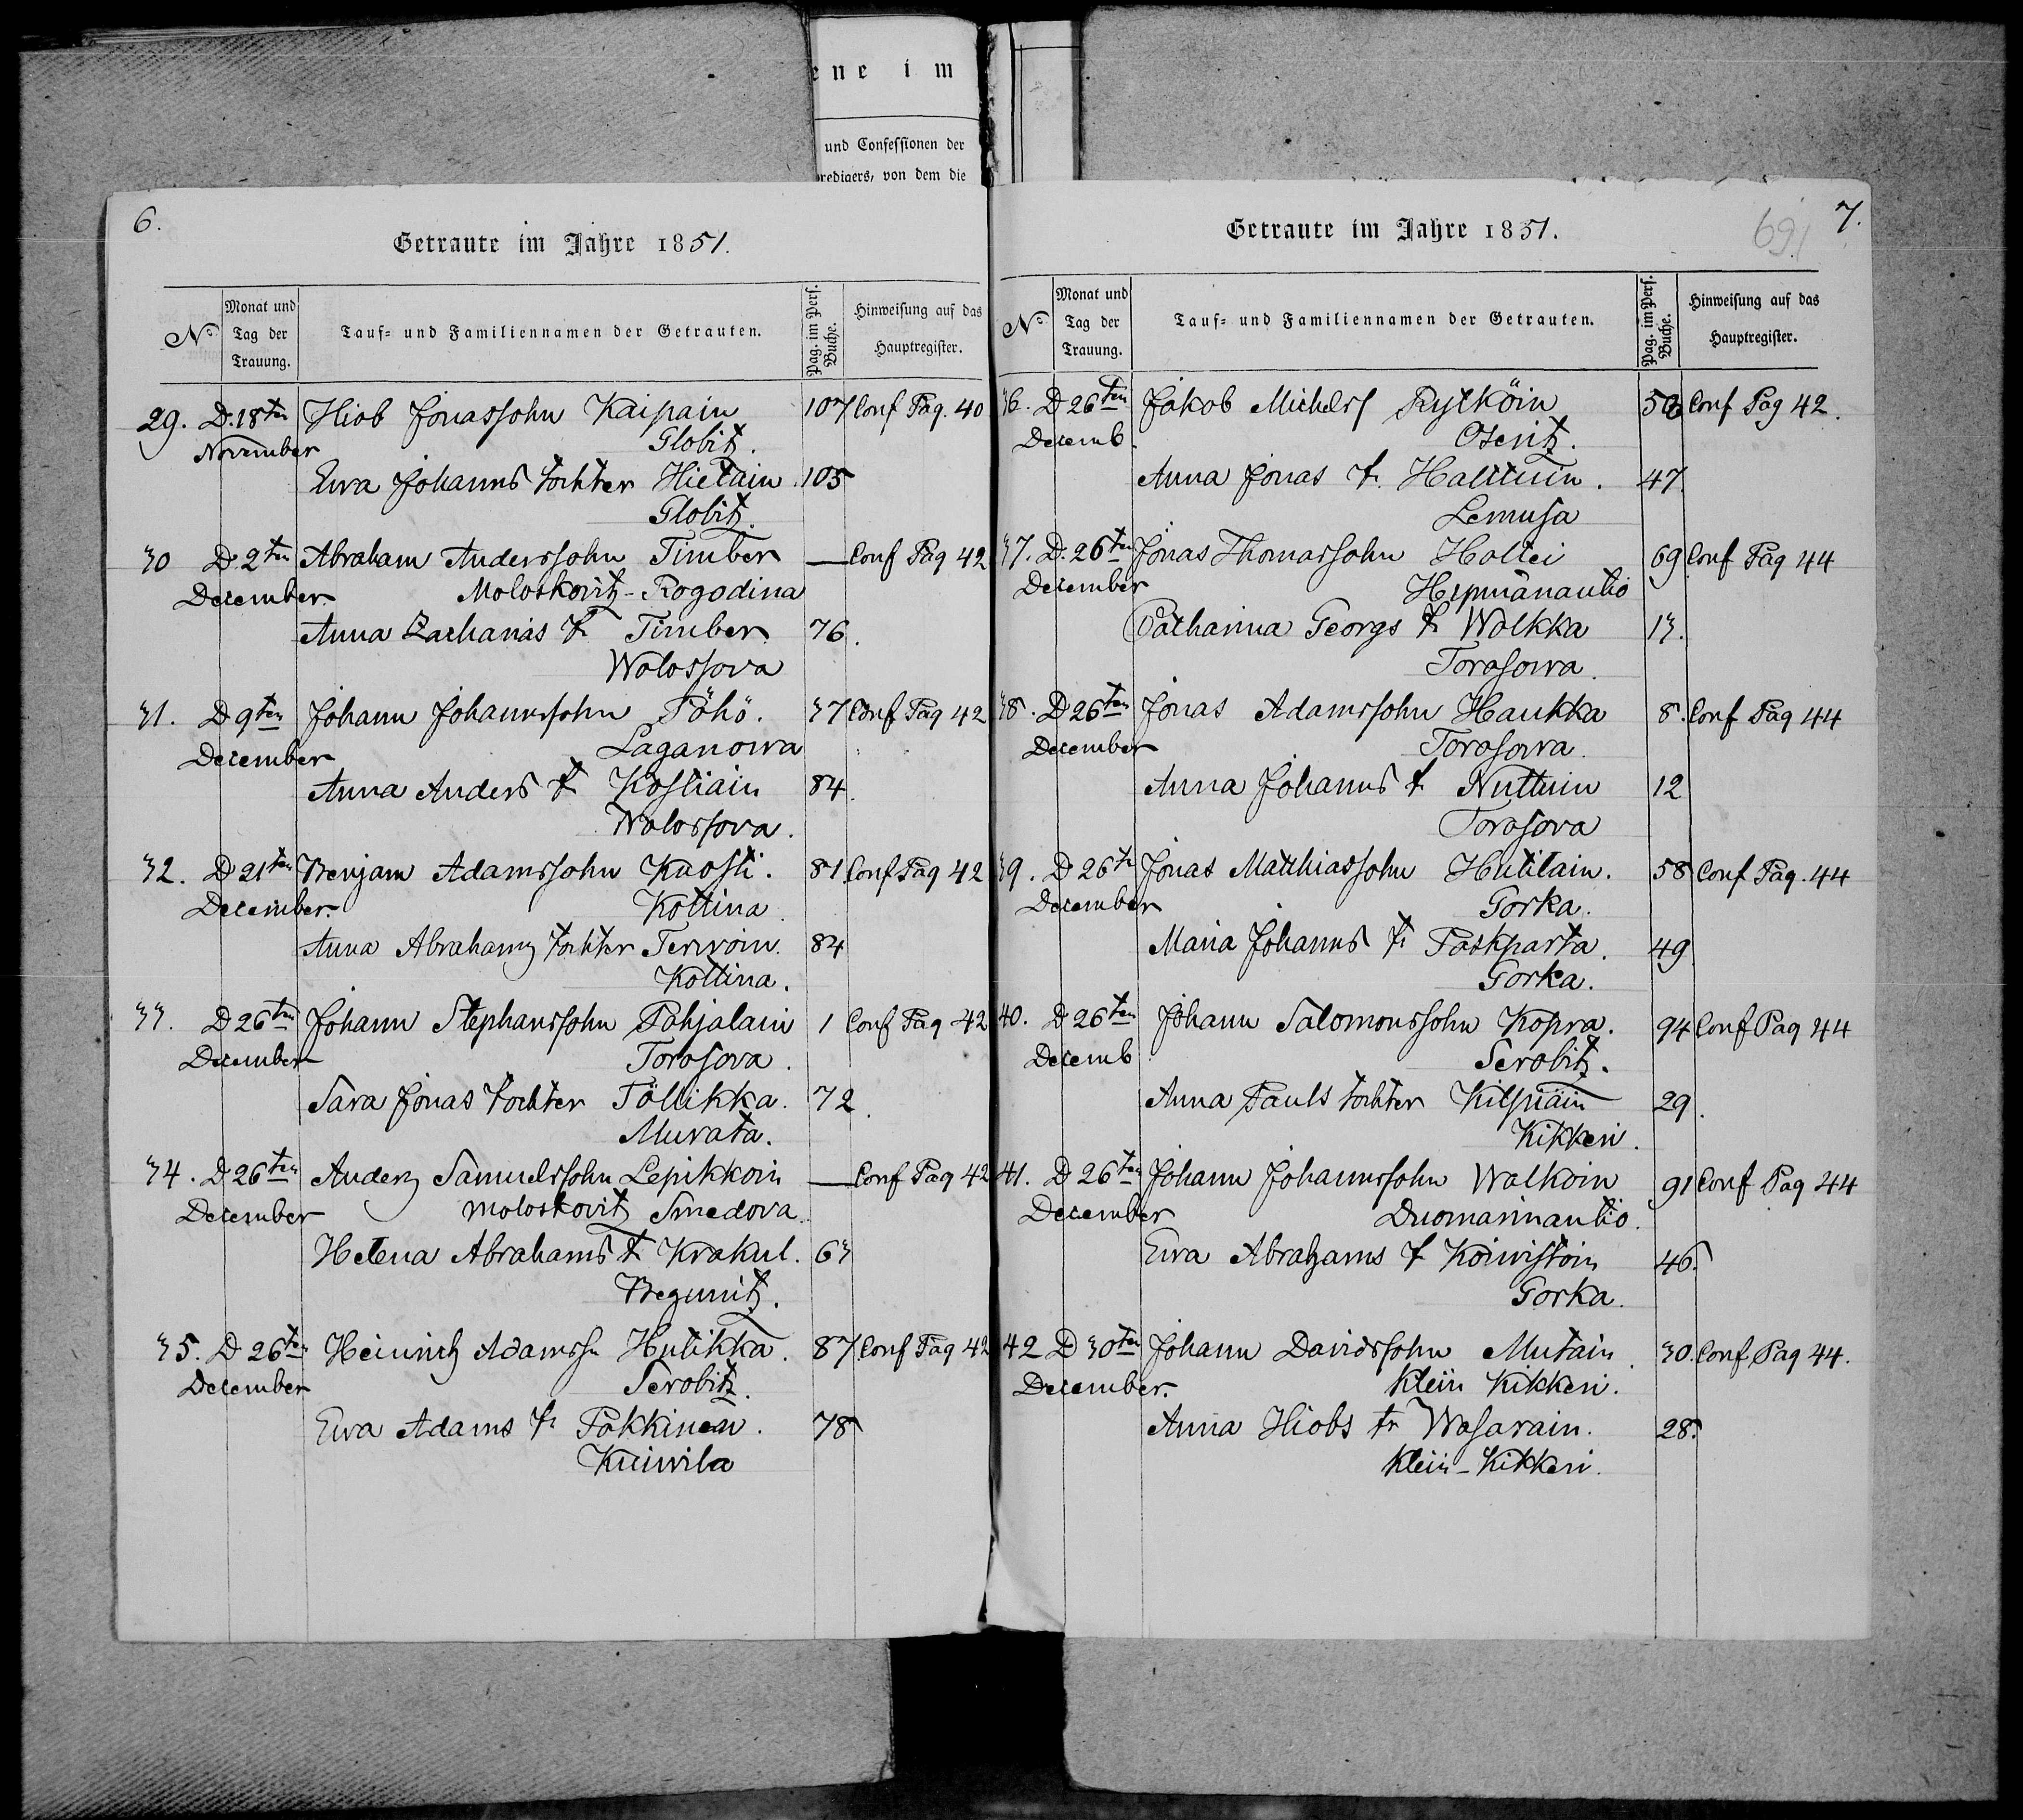 ene im
und Confessionen der
redigers, von dem die
6.
Getraute im Jahre 1851.
No. Monat und Tag der Trauung. Tauf- und Familiennamen der Getrauten. Pag. im Pers. Buche. Hinweisung auf das Hauptregister.
29. D. 18ten Hiob Jonassohn Kaipain 107 Conf Pag. 40
November Globitz.
Ewa Johanns tochter Hietain. 105
Globitz.
30 D. 2ten Abraham Anderssohn Timber — Conf Pag 42
December. Moloskovitz-Rogodina
Anna Zacharias tr Timber 76.
Wolossova
31. D 9ten Johann Johannssohn Pöhö. 37 Conf Pag 42
December Laganowa
Anna Anders tr Kostiain 84.
Wolossova.
32. D 21ten Benjam Adamssohn Kaosti. 81 Conf Pag 42
December. Kottina
Anna Abrahams tochter Terwoin. 84
Kottina.
33. D 26ten Johann Stephanssohn Pohjalain 1 Conf Pag 42
December Torosova.
Sara Jonas tochter Pöllikka. 72.
Murata.
34. D 26ten Anders Samuelssohn Lepikkoin — Conf Pag 42
December moloskovitz Smedova.
Helena Abrahams tr Krakul. 63
Begunitz.
35. D 26ten Heinrich Adamssn Hulikka. 87 Conf Pag 42
December Serobitz.
Ewa Adams tr Pakkinen. 78
Kuiwila
7.
691
Getraute im Jahre 1851.
No. Monat und Tag der Trauung. Tauf- und Familiennamen der Getrauten. Pag. im Pers. Buche. Hinweisung auf das Hauptregister.
36. D 26ten Jakob Michelss Rytköin 50 Conf Pag 42.
Decemb. Oseritz.
Anna Jonas tr. Halttuin. 47.
Lemusa
37. D. 26ten Jonas Thomassohn Holtei 69 Conf Pag 44
December Hepmänautio
Catharina Georgs tr Wolkka 13.
Torosowa.
38. D 26ten Jonas Adamssohn Haukka 8. Conf Pag 44
December Torosowa.
Anna Johanns tr Nuttuin 12
Torosova
39. D 26tn Jonas Matthiassohn Hutilain. 58 Conf Pag. 44
December Gorka.
Maria Johanns tr Paskparta. 49
Gorka.
40. D 26ten Johann Salomonssohn Kopra. 94 Conf Pag 44
Decemb Serobitz.
Anna Pauls tochter Kilpiäin 29.
Kikkeri.
41. D 26ten Johann Johannssohn Walkoin 91 Conf Pag 44
December Duomarinautio.
Ewa Abrahams tr Koiwistoin 46.
Gorka.
42 D 30ten Johann Davidssohn Mutain. 30. Conf Pag 44.
December. Klein Kikkeri.
Anna Hiobs tr Wasarain. 28.
Klein-Kikkeri.